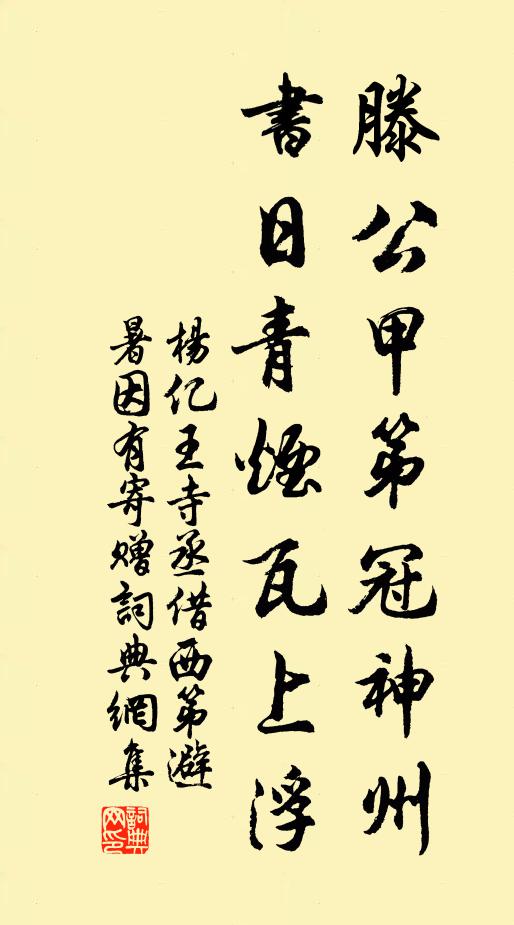 滕公甲第冠神州
書日青煙瓦上浮
楊亿王寺丞借西第避
暑因有寄贈詞典網集
詞典
网印